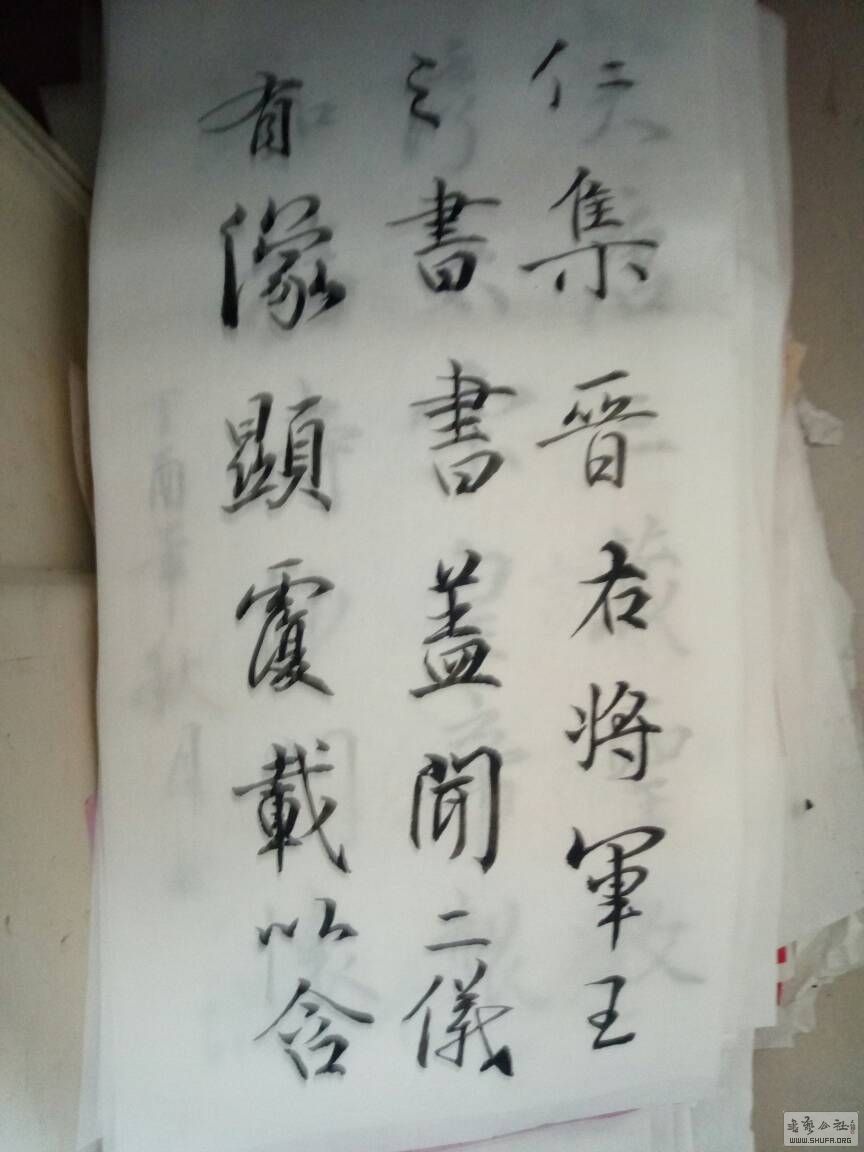 仁集晋右将軍王
之書書蓋聞二儀
有像顯覆載以含
书艺公社
WWW.SHUFA.ORG